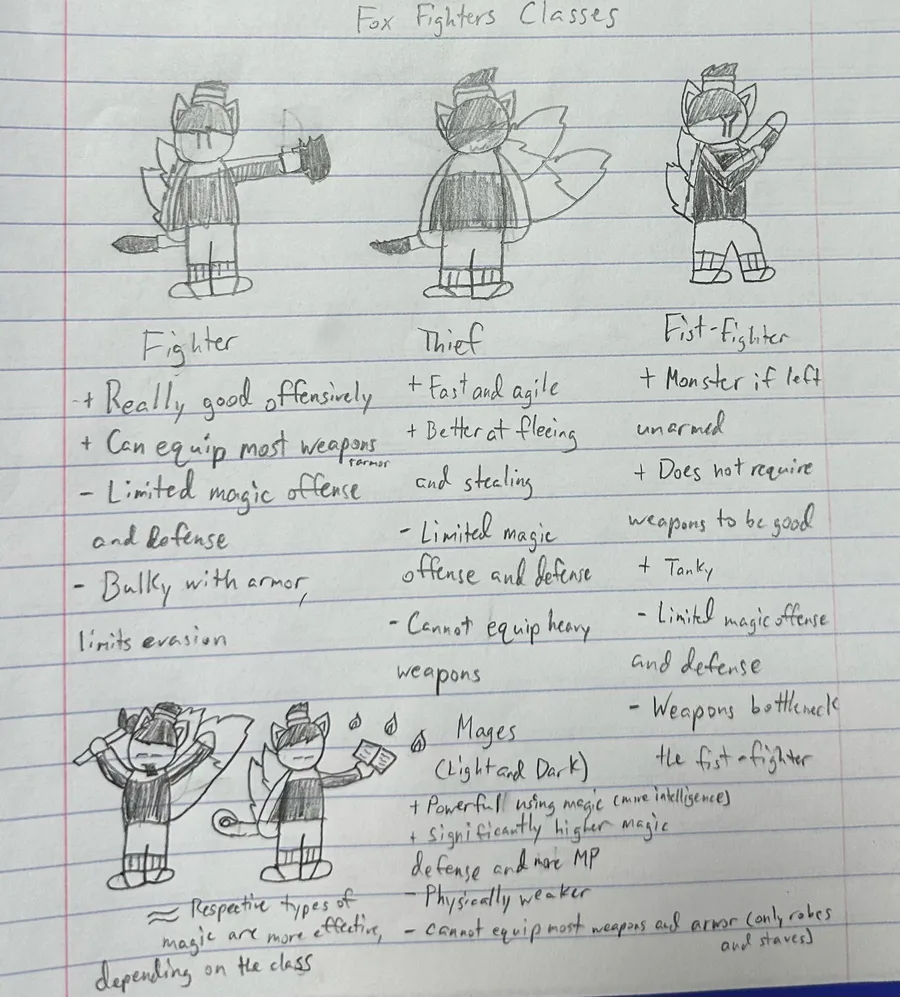 Fox Fighters Classes
Fighter
+ Really good offensively
+ Can equip most weapons
+armor
- Limited magic offense
and defense
- Bulky with armor,
limits evasion
Thief
+ Fast and agile
+ Better at fleeing
and stealing
- Limited magic
offense and defense
- Cannot equip heavy
weapons
Fist-Fighter
+ Monster if left
unarmed
+ Does not require
weapons to be good
+ Tanky
- Limited magic offense
and defense
- Weapons bottleneck
the fist-fighter
Mages
(Light and Dark)
+ Powerful using magic (more intelligence)
+ Significantly higher magic
defense and more MP
- Physically weaker
- Cannot equip most weapons and armor (only robes
and staves)
≈ Respective types of
magic are more effective,
depending on the class